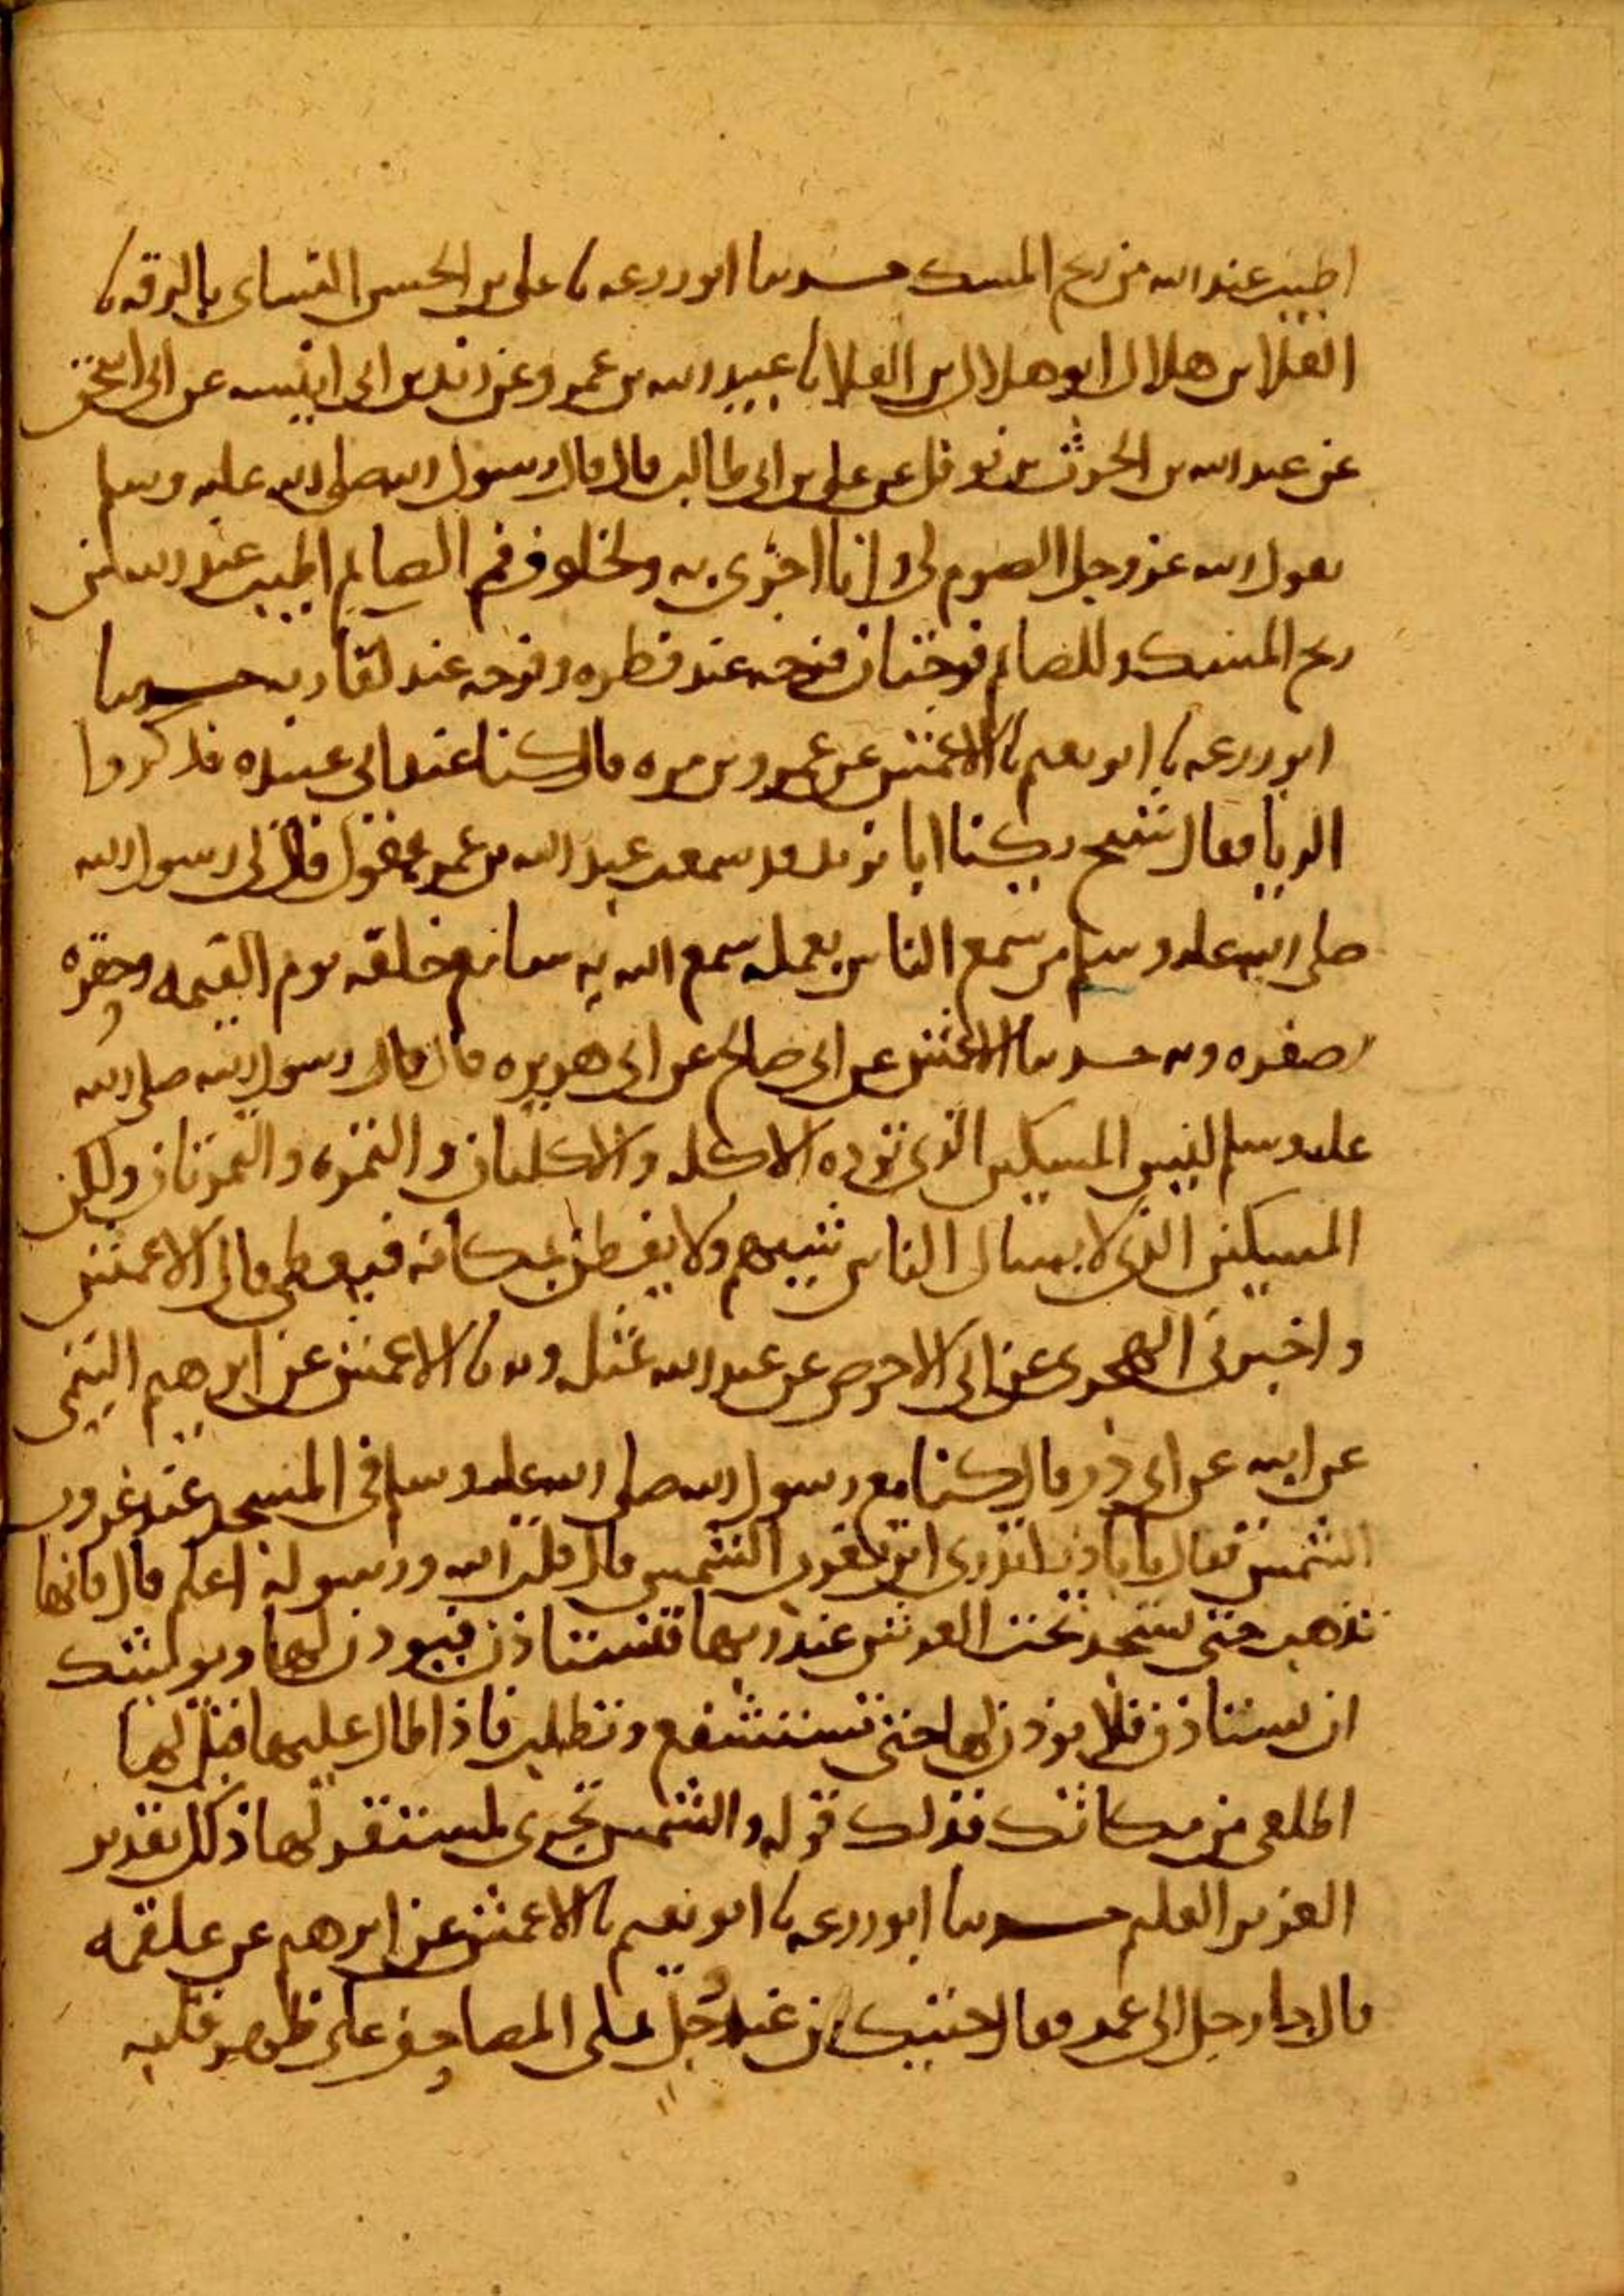 اطيب عند الله من ريح المسك حدثنا ابو زرعه نا علي بن الحسن النسائي بالرقه نا
العلا بن هلال ابو هلال بن العلا نا عبيد الله بن عمرو عن زيد بن ابي انيسه عن ابي اسحق
عن عبد الله بن الحرث بن نوفل عن علي بن ابي طالب قال قال رسول الله صلى الله عليه وسلم
يقول الله عز وجل الصوم لي وانا اجزي به ولخلوف فم الصايم اطيب عند الله من
ريح المسك وللصايم فرحتان فرحه عند فطره وفرحه عند لقا ربه حدثنا
ابو زرعه نا ابو نعيم نا الاعمش عن عمرو بن مره قال كنا عند ابي عبيده فذكروا
الريا فقال شيخ يكنا ابا يزيد قد سمعت عبد الله بن عمر يقول قال لي رسول الله
صلى الله عليه وسلم من سمع الناس بعمله سمع الله به سامع خلقه يوم القيمه وحقره
وصغره وبه حدثنا الاعمش عن ابي صالح عن ابي هريره قال قال رسول الله صلى الله
عليه وسلم ليس المسكين الذي ترده الاكله والاكلتان والتمره والتمرتان ولكن
المسكين الذي لا يسال الناس شييهم ولا يفطن بمكانه فيعطى قال الاعمش
واخبرني الهجري عن ابي الاحوص عن عبد الله مثله وبه نا الاعمش عن ابرهيم التيمي
عن ابيه عن ابي ذر قال كنا مع رسول الله صلى الله عليه وسلم في المسجد عند غروب
الشمس فقال يا با ذر اتدري اين تغرب الشمس قال قلت الله ورسوله اعلم قال فانها
تذهب حتى تسجد تحت العرش عند ربها فتستاذن فيوذن لها ويوشك
ان تستاذن فلا يوذن لها حتى تستشفع وتطلب فاذا طال عليها قيل لها
اطلعي من مكانك فذلك قوله والشمس تجري لمستقر لها ذلك تقدير
العزيز العليم حدثنا ابو زرعه نا ابو نعيم نا الاعمش عن ابرهيم عن علقمه
قال جا رجل الى عمر فقال جيتك من عند رجل يملي المصاحف على ظهر قلبه